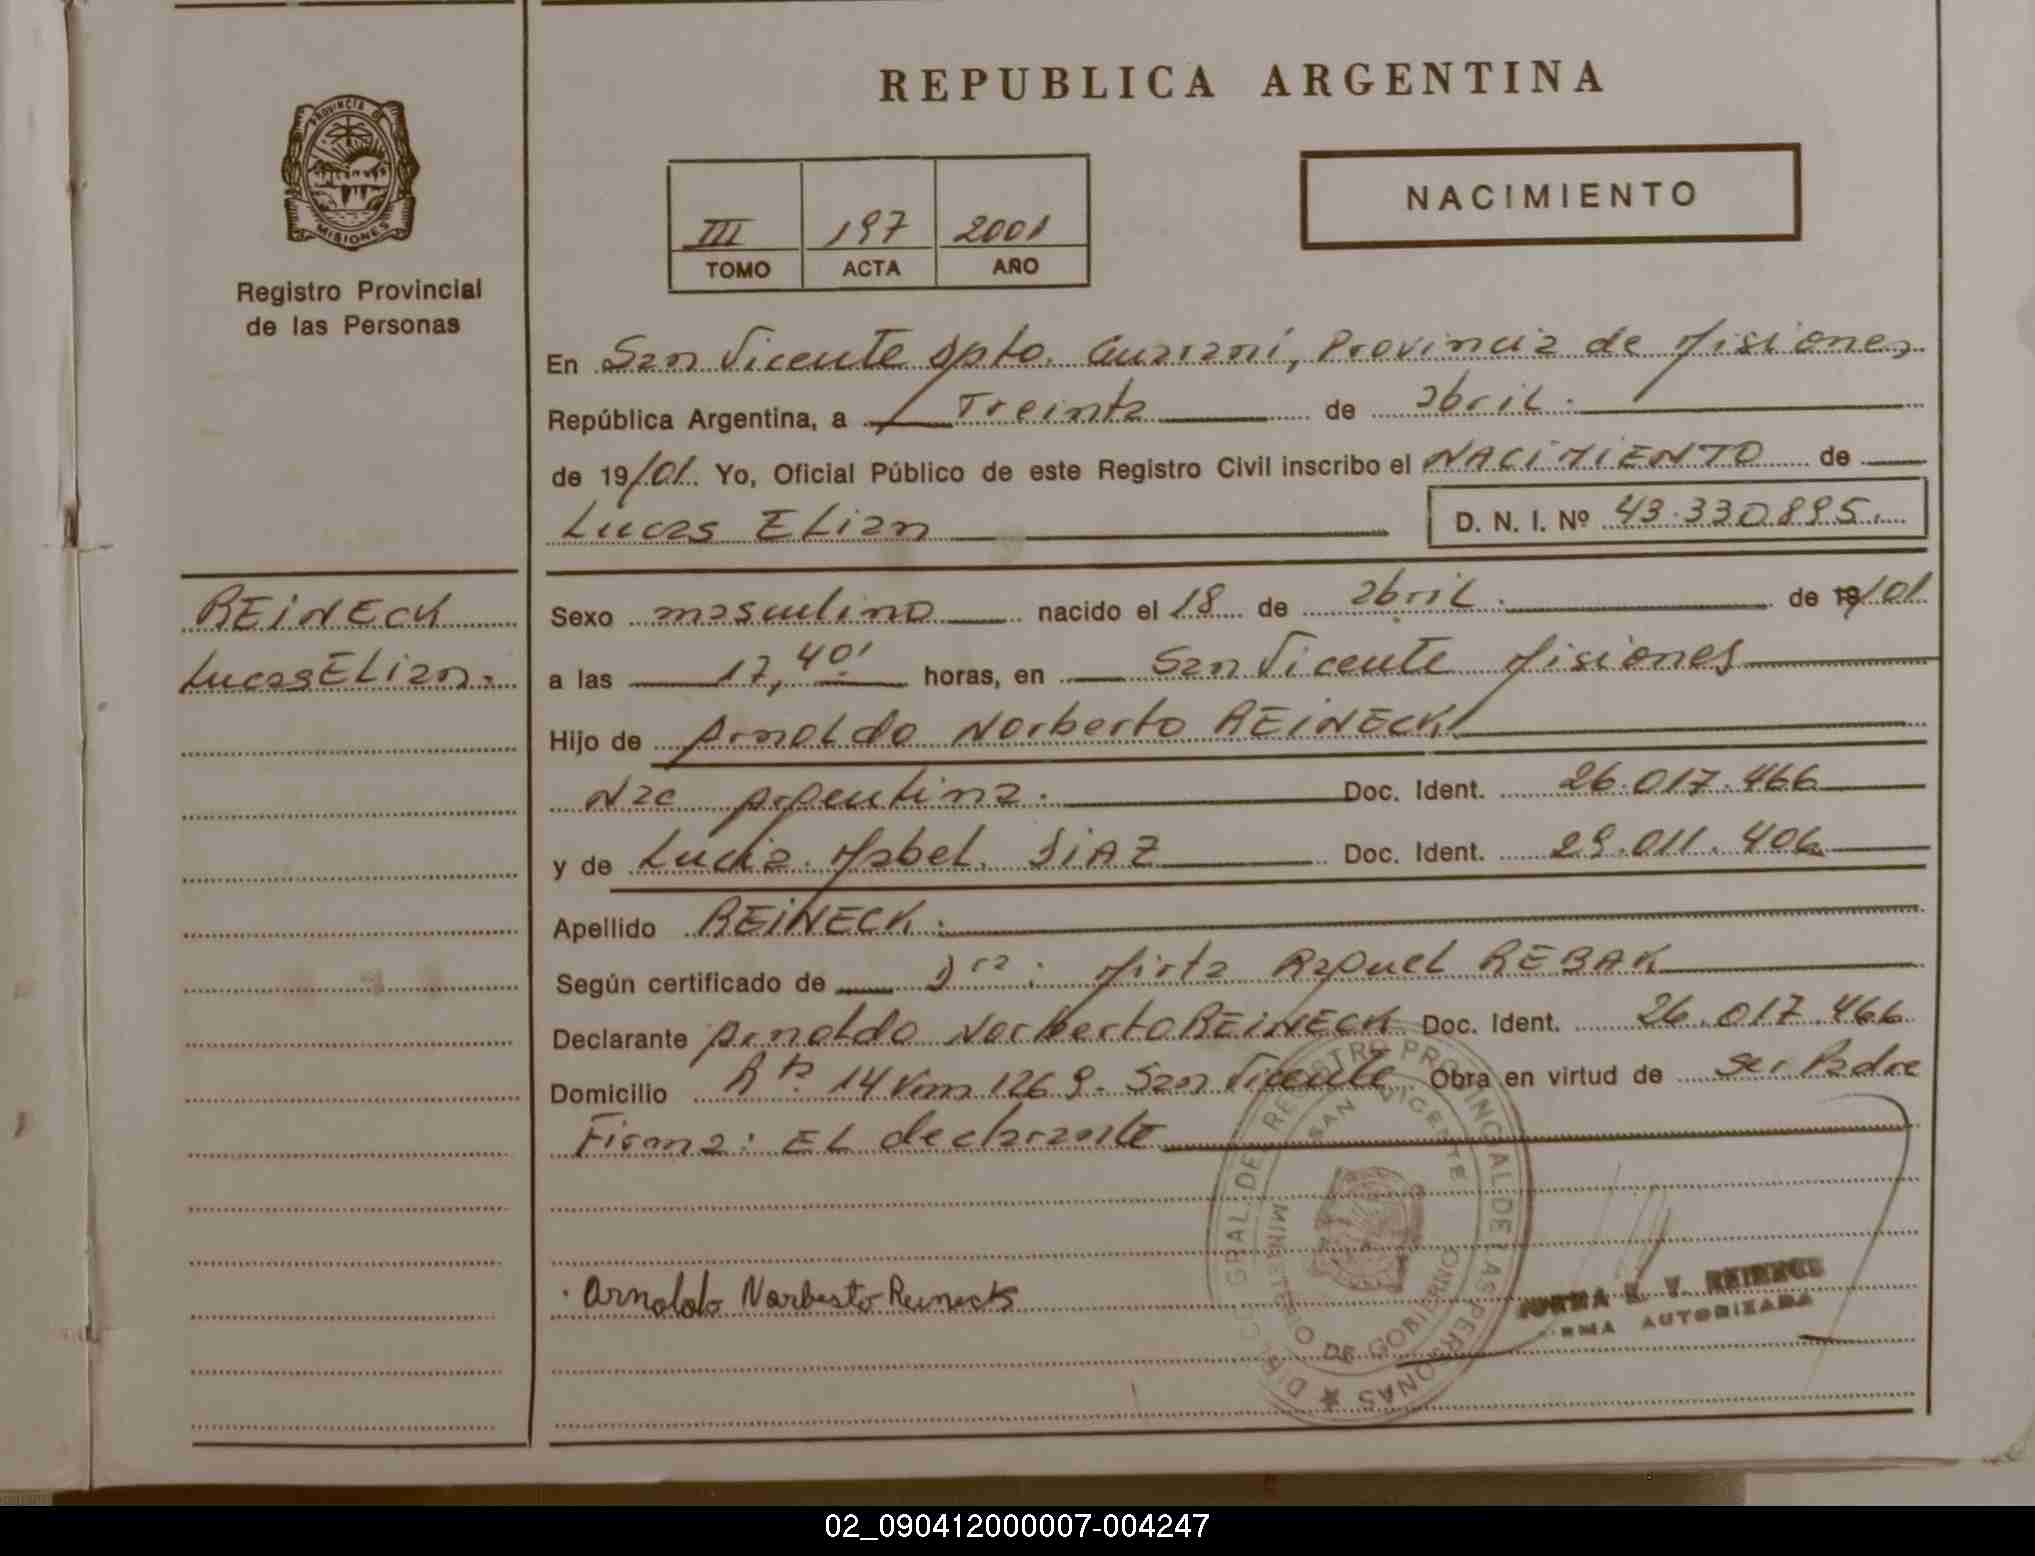 PROVINCIA DE
MISIONES
Registro Provincial
de las Personas
REPUBLICA ARGENTINA
III 197 2001
TOMO ACTA AÑO
NACIMIENTO
En San Vicente Dpto. Guaraní, Provincia de Misiones
República Argentina, a Treinta de abril.
de 19/01. Yo, Oficial Público de este Registro Civil inscribo el NACIMIENTO de
Lucas Elian D. N. I. Nº 43.330.895.
REINECK
Lucas Elian.
Sexo masculino nacido el 18 de abril. de 19/01
a las 17,40' horas, en San Vicente Misiones
Hijo de Arnoldo Norberto REINECK
Nac Argentina. Doc. Ident. 26.017.466
y de Lucia Mabel. DIAZ Doc. Ident. 29.011.406
Apellido REINECK.
Según certificado de Dra: Mirta Raquel REBAK
Declarante Arnoldo Norberto REINECK Doc. Ident. 26.017.466
Domicilio Rta 14 Km 1269. San Vicente Obra en virtud de ser Padre
Firma: El declarante
Arnoldo Norberto Reineck
DIREC. GRAL. DE REGISTRO PROVINCIAL DE LAS PERSONAS
SAN VICENTE
MINISTERIO DE GOBIERNO
NORMA E. V. REINECK
RMA AUTORIZADA
02_090412000007-004247